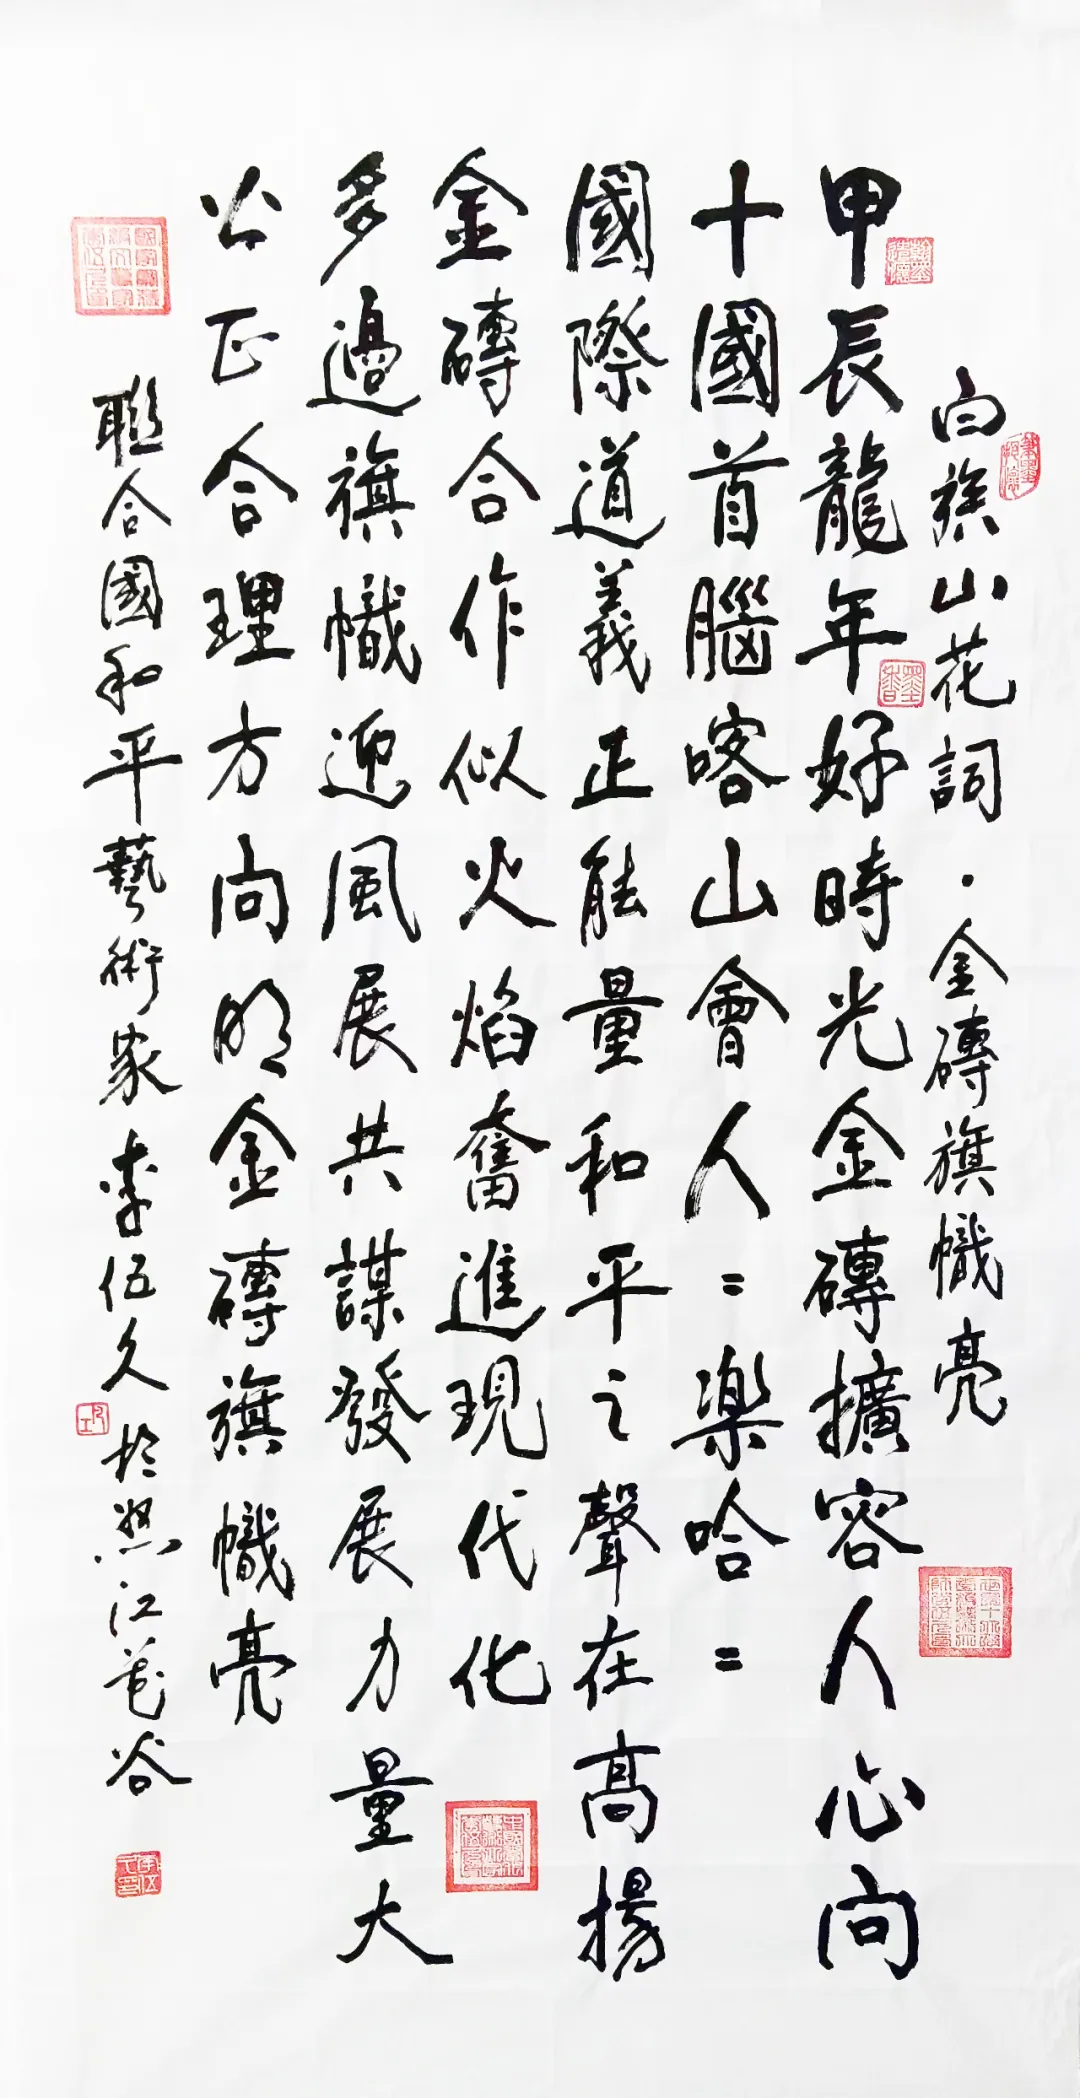 白族山花詞·金磚旗幟亮
甲長龍年好時光金磚擴容人心向
十國首腦喀山會人=樂哈=
國際道義正能量和平之聲在高揚
金磚合作似火焰奮進現代化
多邊旗幟迎風展共謀發展力量大
公正合理方向明金磚旗幟亮
聯合國和平藝術家李伍久於怒江花谷